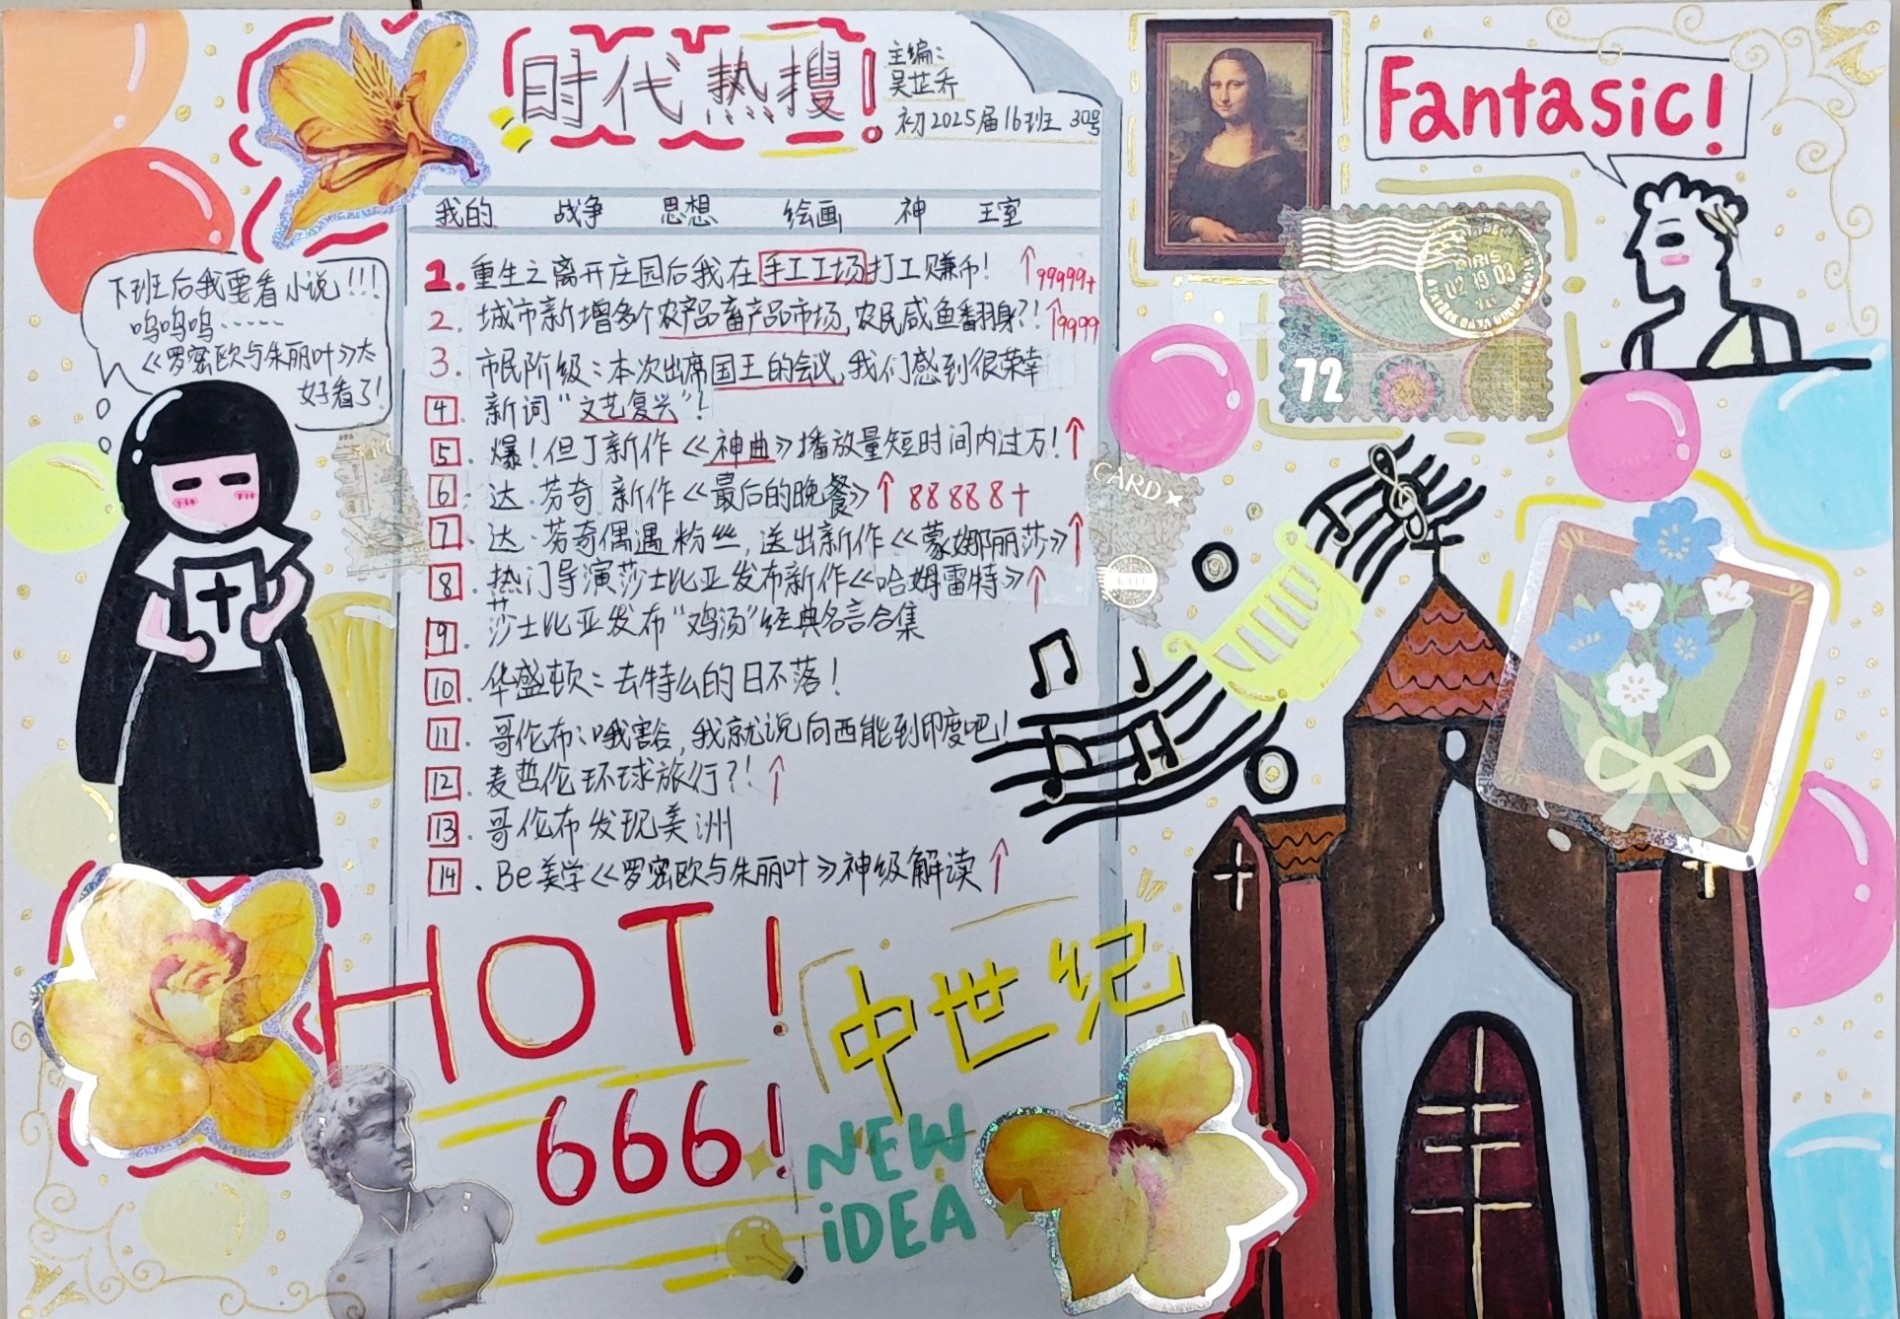 时代热搜!
主编:
吴芷乔
初2025届16班 30号
我的 战争 思想 绘画 神 王室
1. 重生之离开庄园后我在手工工场打工赚币! ↑99999+
2. 城市新增多个农产品畜产品市场,农民咸鱼翻身?! ↑9999
3. 市民阶级:本次出席国王的会议,我们感到很荣幸
4. 新词“文艺复兴”!
5. 爆!但丁新作《神曲》播放量短时间内过万!↑
6. 达·芬奇 新作《最后的晚餐》↑ 88888+
7. 达·芬奇偶遇粉丝,送出新作《蒙娜丽莎》↑
8. 热门导演莎士比亚发布新作《哈姆雷特》↑
9. 莎士比亚发布“鸡汤”经典名言合集
10. 华盛顿:去特么的日不落!
11. 哥伦布:哦害合,我就说向西能到印度吧!
12. 麦哲伦环球旅行?!↑
13. 哥伦布发现美洲
14. Be美学《罗密欧与朱丽叶》神级解读↑
下班后我要看小说!!!
呜呜呜……
《罗密欧与朱丽叶》太
好看了!
Fantasic!
72
CARD
HOT!
中世纪
666!
NEW
iDEA